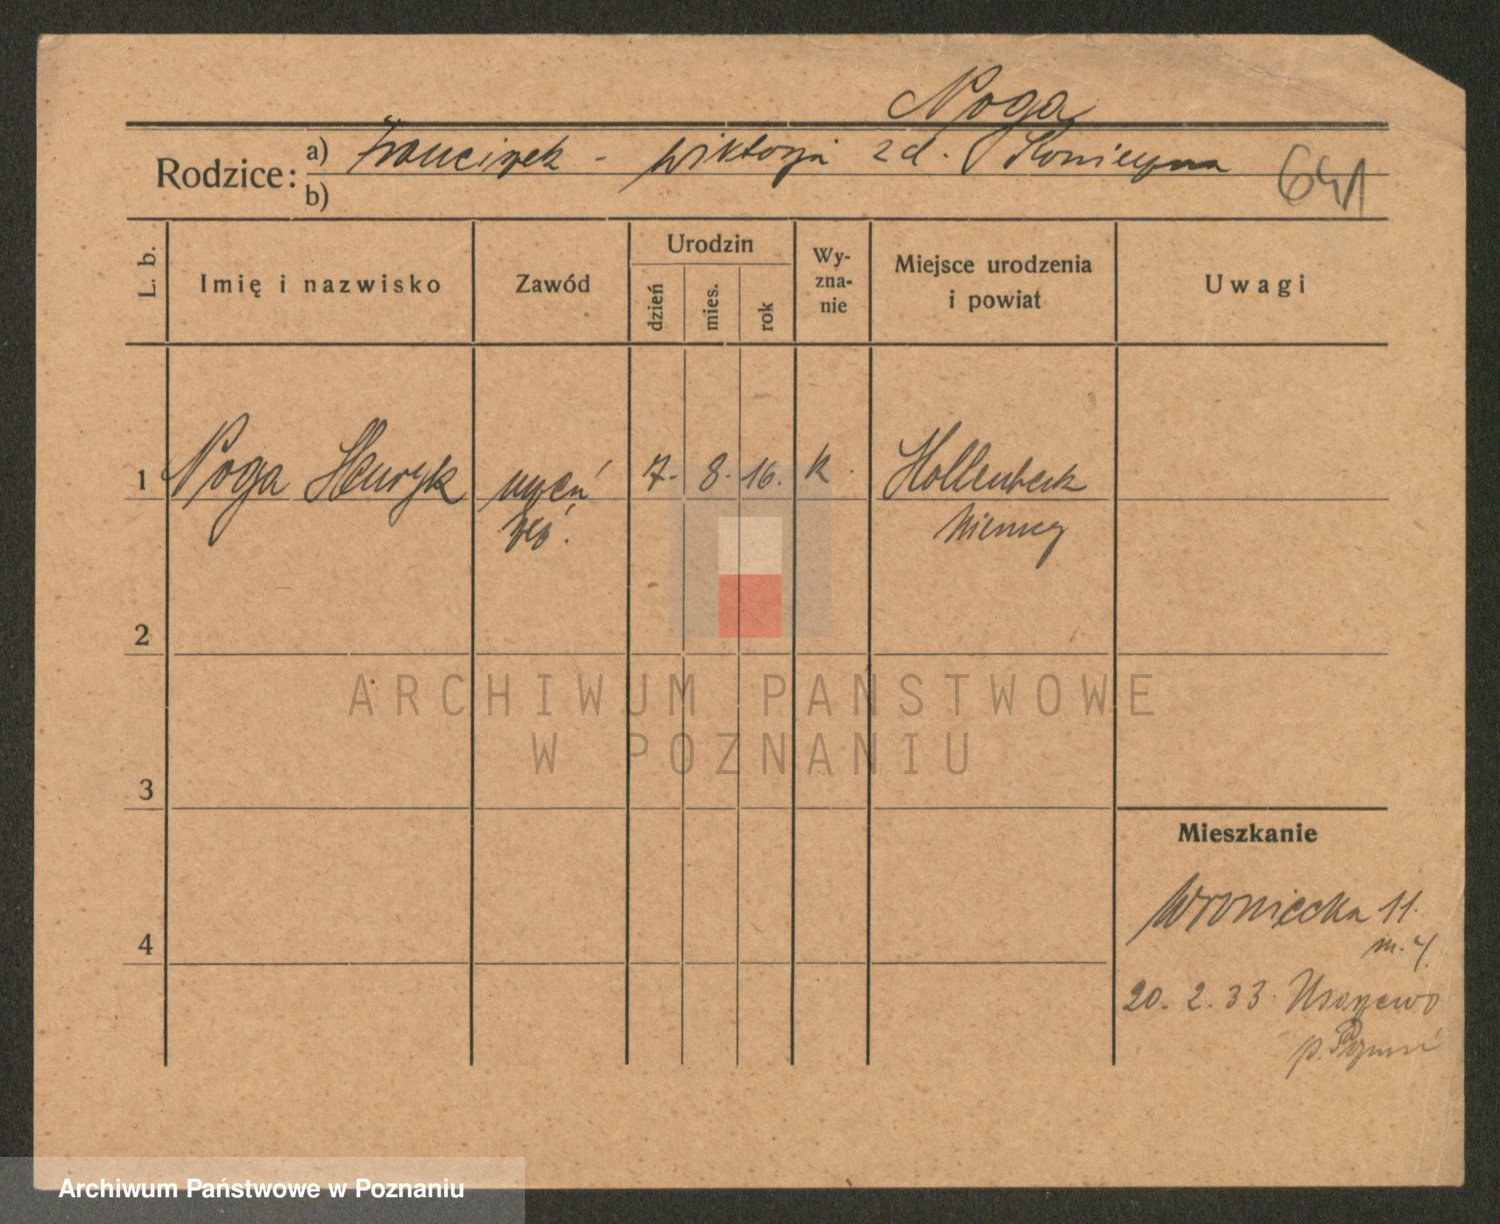 Noga
Rodzice: a) Franciszek - Wiktorja z d. Konieczna
b)
641
L. b. Imię i nazwisko Zawód Urodzin dzień mies. rok Wy-zna-nie Miejsce urodzenia i powiat Uwagi
1 Noga Henryk uczeń 7. 8. 16. k. Hollenbeck
Niemcy
2
ARCHIWUM PAŃSTWOWE
W POZNANIU
3
Mieszkanie
Wroniecka 11.
4
20. 2. 33.
p. Poznań
Archiwum Państwowe w Poznaniu